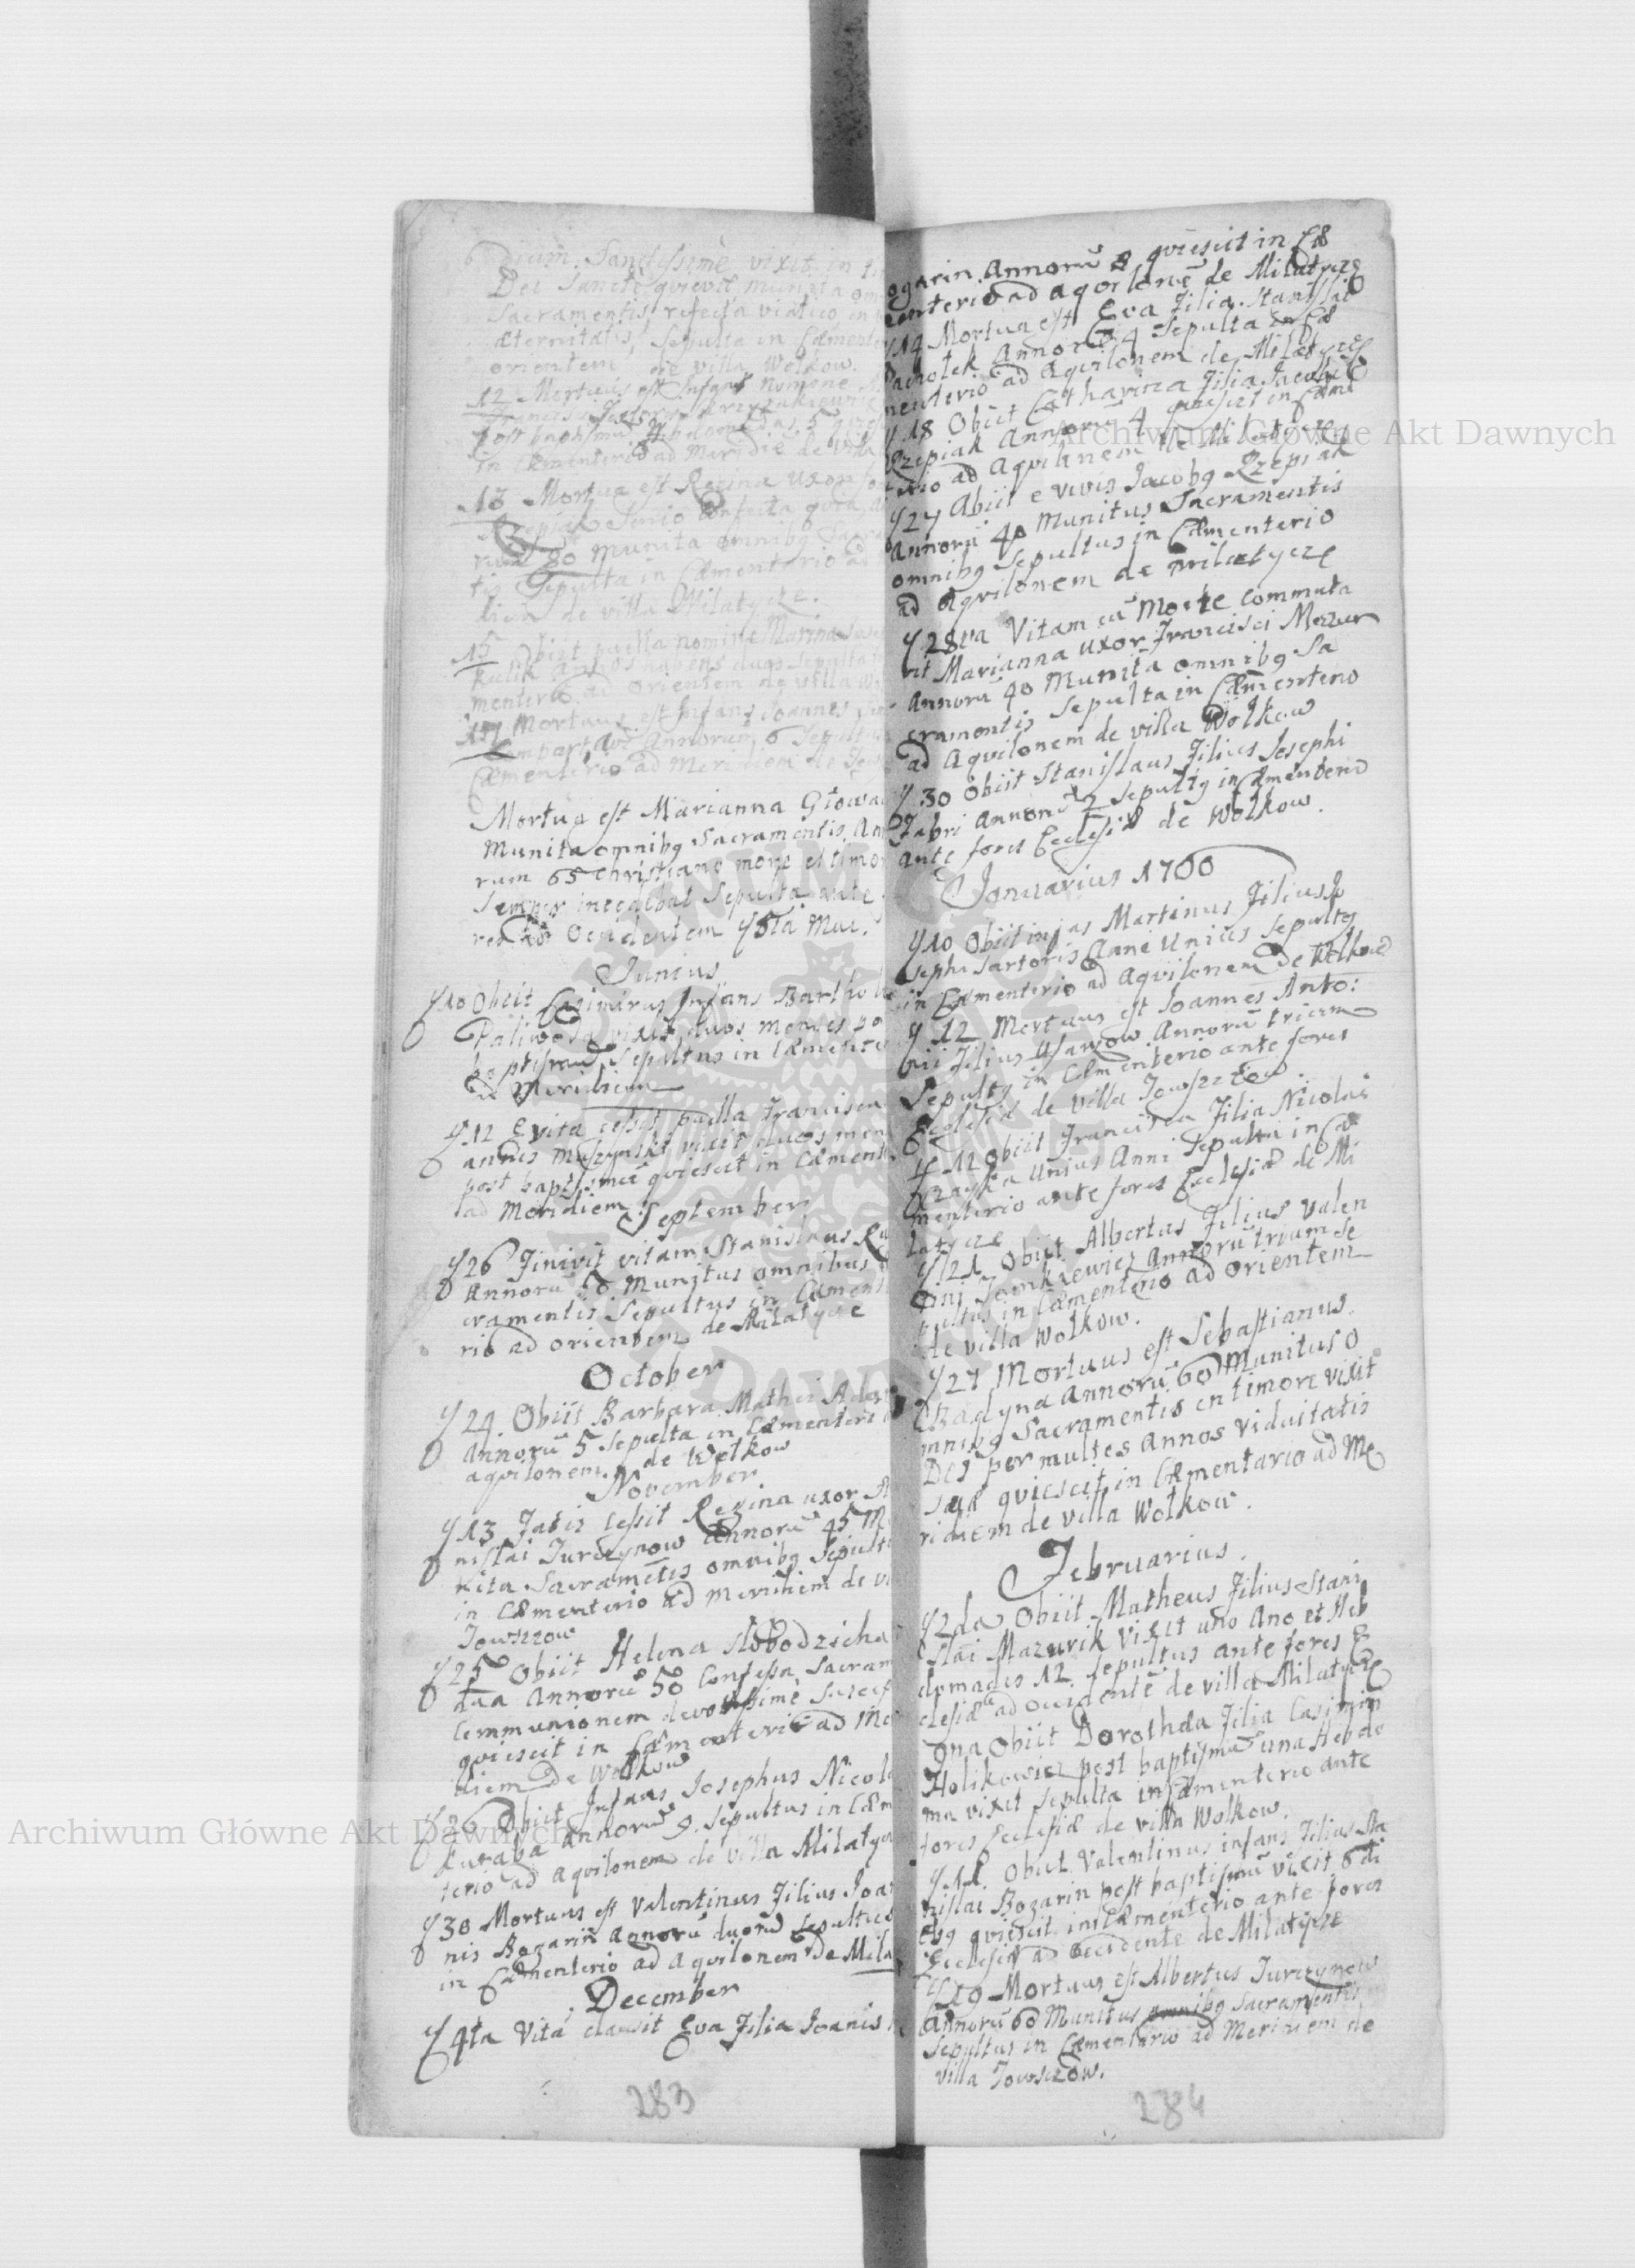 Dium. Sanctissimè vixit in ti
Dei Sancte quievit munita om
Sacramentis refecta viatico in
æternitatis, Sepulta in Cæmente
orientem de villa Wolkow.
12 Mortuus est Infans nomine
post baptismũ 5
in Cæmenterio ad Meridiē de villa
13 Mortua est Regina uxor
Rzepiak Senio confecta
rum 80 Munita omnibq Sacra
tis Sepulta in Cæmenterio ad
diem de villa Milatycze.
15 Obiit puella nomine Marina
Kulik annos habens duos Sepulta
menterio ad Orientem de villa Wo
17 Mortuus est Infans Joannes
Annorum 6 Sepultus
Cæmenterio ad Meridiem de
Mortua est Marianna Głowa
Munita omnibq Sacramentis, An
rum 65 Christiano more et timo
Semper incedebat Sepulta ante
res ad Occidentem
Junius
10 Obiit Casimirus Infans Bartholo
Paliwoda vixit duos menses po
baptismũ Sepultus in Cæmente
ad Meridiem
12 E vita cessit puella Francisca
annis Muszynski vixit duos men
post baptismũ quiescit in Cæment
ad Meridiem
September
26 Finivit vitam Stanislaus
Annorũ 50 Munitus omnibus
cramentis Sepultus in Cæmente
rio ad orientem de Milatycze
October
24 Obiit Barbara Mathei
Annorũ 5 Sepulta in Cæmenteri
aquilonem. de Wolkow
November
13 Fatis cessit Regina uxor
nislai Jurczynow Annorũ 45 Mu
nita Sacramētis omnibq Sepulta
in Cæmenterio ad meridiem de vi
Towszzow
25 Obiit Helena Słobodzicha
dua Annorũ 50 Confessa Sacram
Communionem devotissimè suscep
quiescit in Cæmenterio ad Me
diem de Wolkow
26 Obiit Infans Josephus Nicola
Kuraba Annorũ 9. Sepultus in Cæm
terio ad aquilonem de villa Milatyc
30 Mortuus est Valentinus Filius Joa
nis Bogarin Annorũ duorũ Sepultus
in Cæmenterio ad Aquilonem de Mila
December
4ta Vitã clausit Eva Filia Joanis
283
ogarin Annorũ 8 quiescit in Cæ
menterio ad aquilonē de Milatycze
14 Mortua est Eva Filia Stanislai
Pachołek Annorũ 4 Sepulta in Cæ
menterio ad Aquilonem de Milatycze
18 Obiit Catharina Filia Jacobi
Rzepiak Annorũ 4 quiescit in Cæme
terio ad Aquilonem de Milatycze
27 Abiit e vivis Jacobq Rzepiak
Annorũ 40 Munitus Sacramentis
omnibq Sepultus in Cæmenterio
ad Aquilonem de Milatycze
28va Vitam cũ Morte commuta
vit Marianna uxor Francisci Mazur
Annorũ 40 Munita omnibq Sa
cramentis Sepulta in Cæmenterio
ad Aquilonem de villa Wolkow
30 Obiit Stanislaus Filius Josephi
Fabri Annorũ 2 Sepultq in Cæmenterio
ante fores Ecclesiæ de Wolkow.
Januarius 1700
10 Obiit infas Martinus Filius Jo
sephi Sartoris Anni Unius Sepultq
in Cæmenterio ad Aquilonem de Wolkow
12 Mortuus est Joannes Anto:
nii Filius Annorũ trium
Sepultq in Cæmenterio ante fores
Ecclesiæ de villa Towszzow.
12 Obiit Francisca Filia Nicolai
Unius Anni Sepulta in Cæ
menterio ante fores Ecclesiæ de Mi
latycze
21 Obiit Albertus Filius Valen
tini Jankiewicz Annorũ trium Se
pultus in Cæmenterio ad orientem
de villa Wolkow.
27 Mortuus est Sebastianus
Annorũ 60 Munitus o
mnibq Sacramentis in timore vixit
Dei per multos Annos viduitatis
suæ quiescit in Cæmenterio ad Me
ridiem de villa Wolkow.
Februarius.
2da Obiit Matheus Filius Stani
slai Mazurik vixit uno Ano et Heb
domades 12 Sepultus ante fores E
clesiæ ad Occidentē de villa Milatycze
9na Obiit Dorothea Filia Casimiri
Holikowicz post baptismũ una Hebdo
ma vixit Sepulta in Cæmenterio ante
fores Ecclesiæ de villa Wolkow.
11. Obiit Valentinus infans Filius Sta
nislai Bogarin post baptismũ vixit 6 di
ebq quiescit in Cæmenterio ante fores
Ecclesiæ ad Occidente de Milatycze
19 Mortuus est Albertus Jurczynow
Annorũ 60 Munitus omnibq Sacramentis
Sepultus in Cæmenterio ad Meridiem de
villa Towszzow.
284
Archiwum Główne Akt Dawnych
Archiwum Główne Akt Dawnych